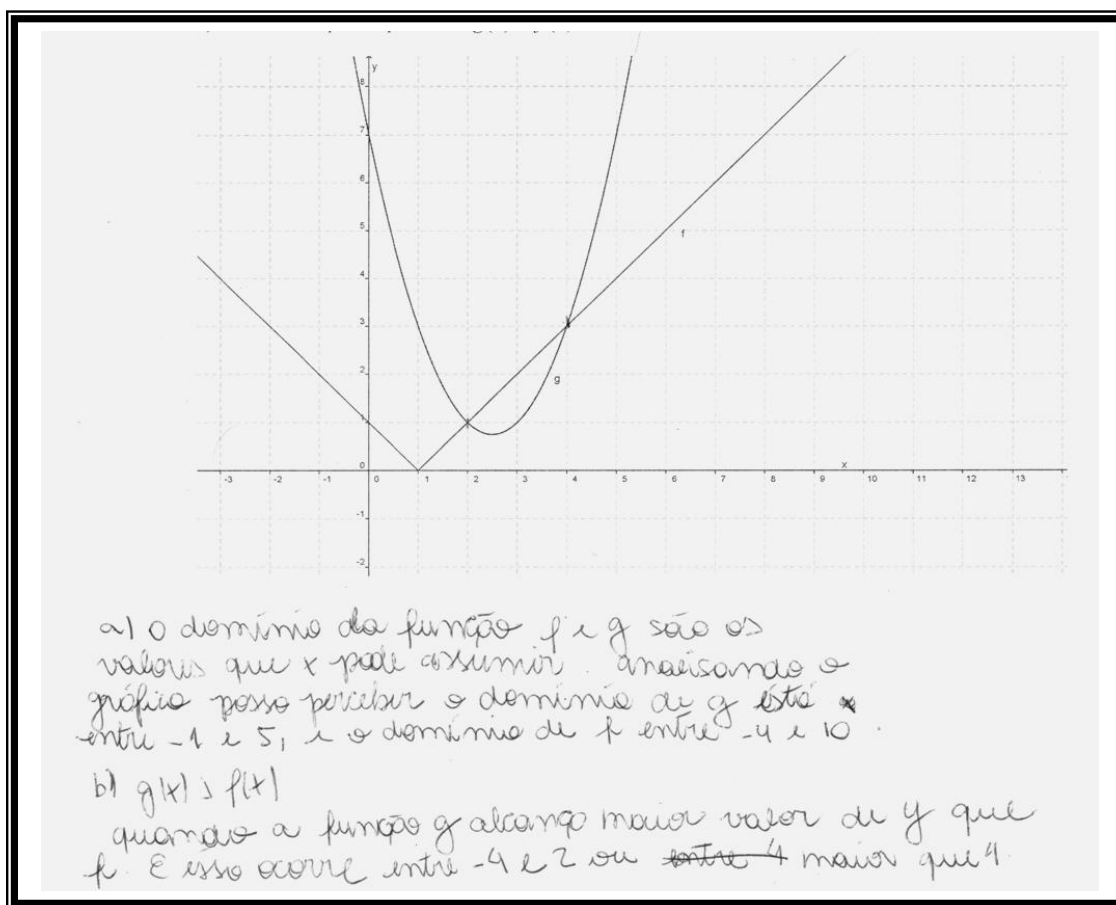 y
8
7
6
5
f
4
3
2
g
1
0
x
-3 -2 -1 0 1 2 3 4 5 6 7 8 9 10 11 12 13
-1
-2
a) o domínio da função f e g são os
valores que x pode assumir. analisando o
gráfico posso perceber o domínio de g está
entre -1 e 5, e o domínio de f entre -4 e 10.
b) g(x) > f(x)
quando a função g alcança maior valor de y que
f. E isso ocorre entre -4 e 2 ou entre 4 maior que 4.